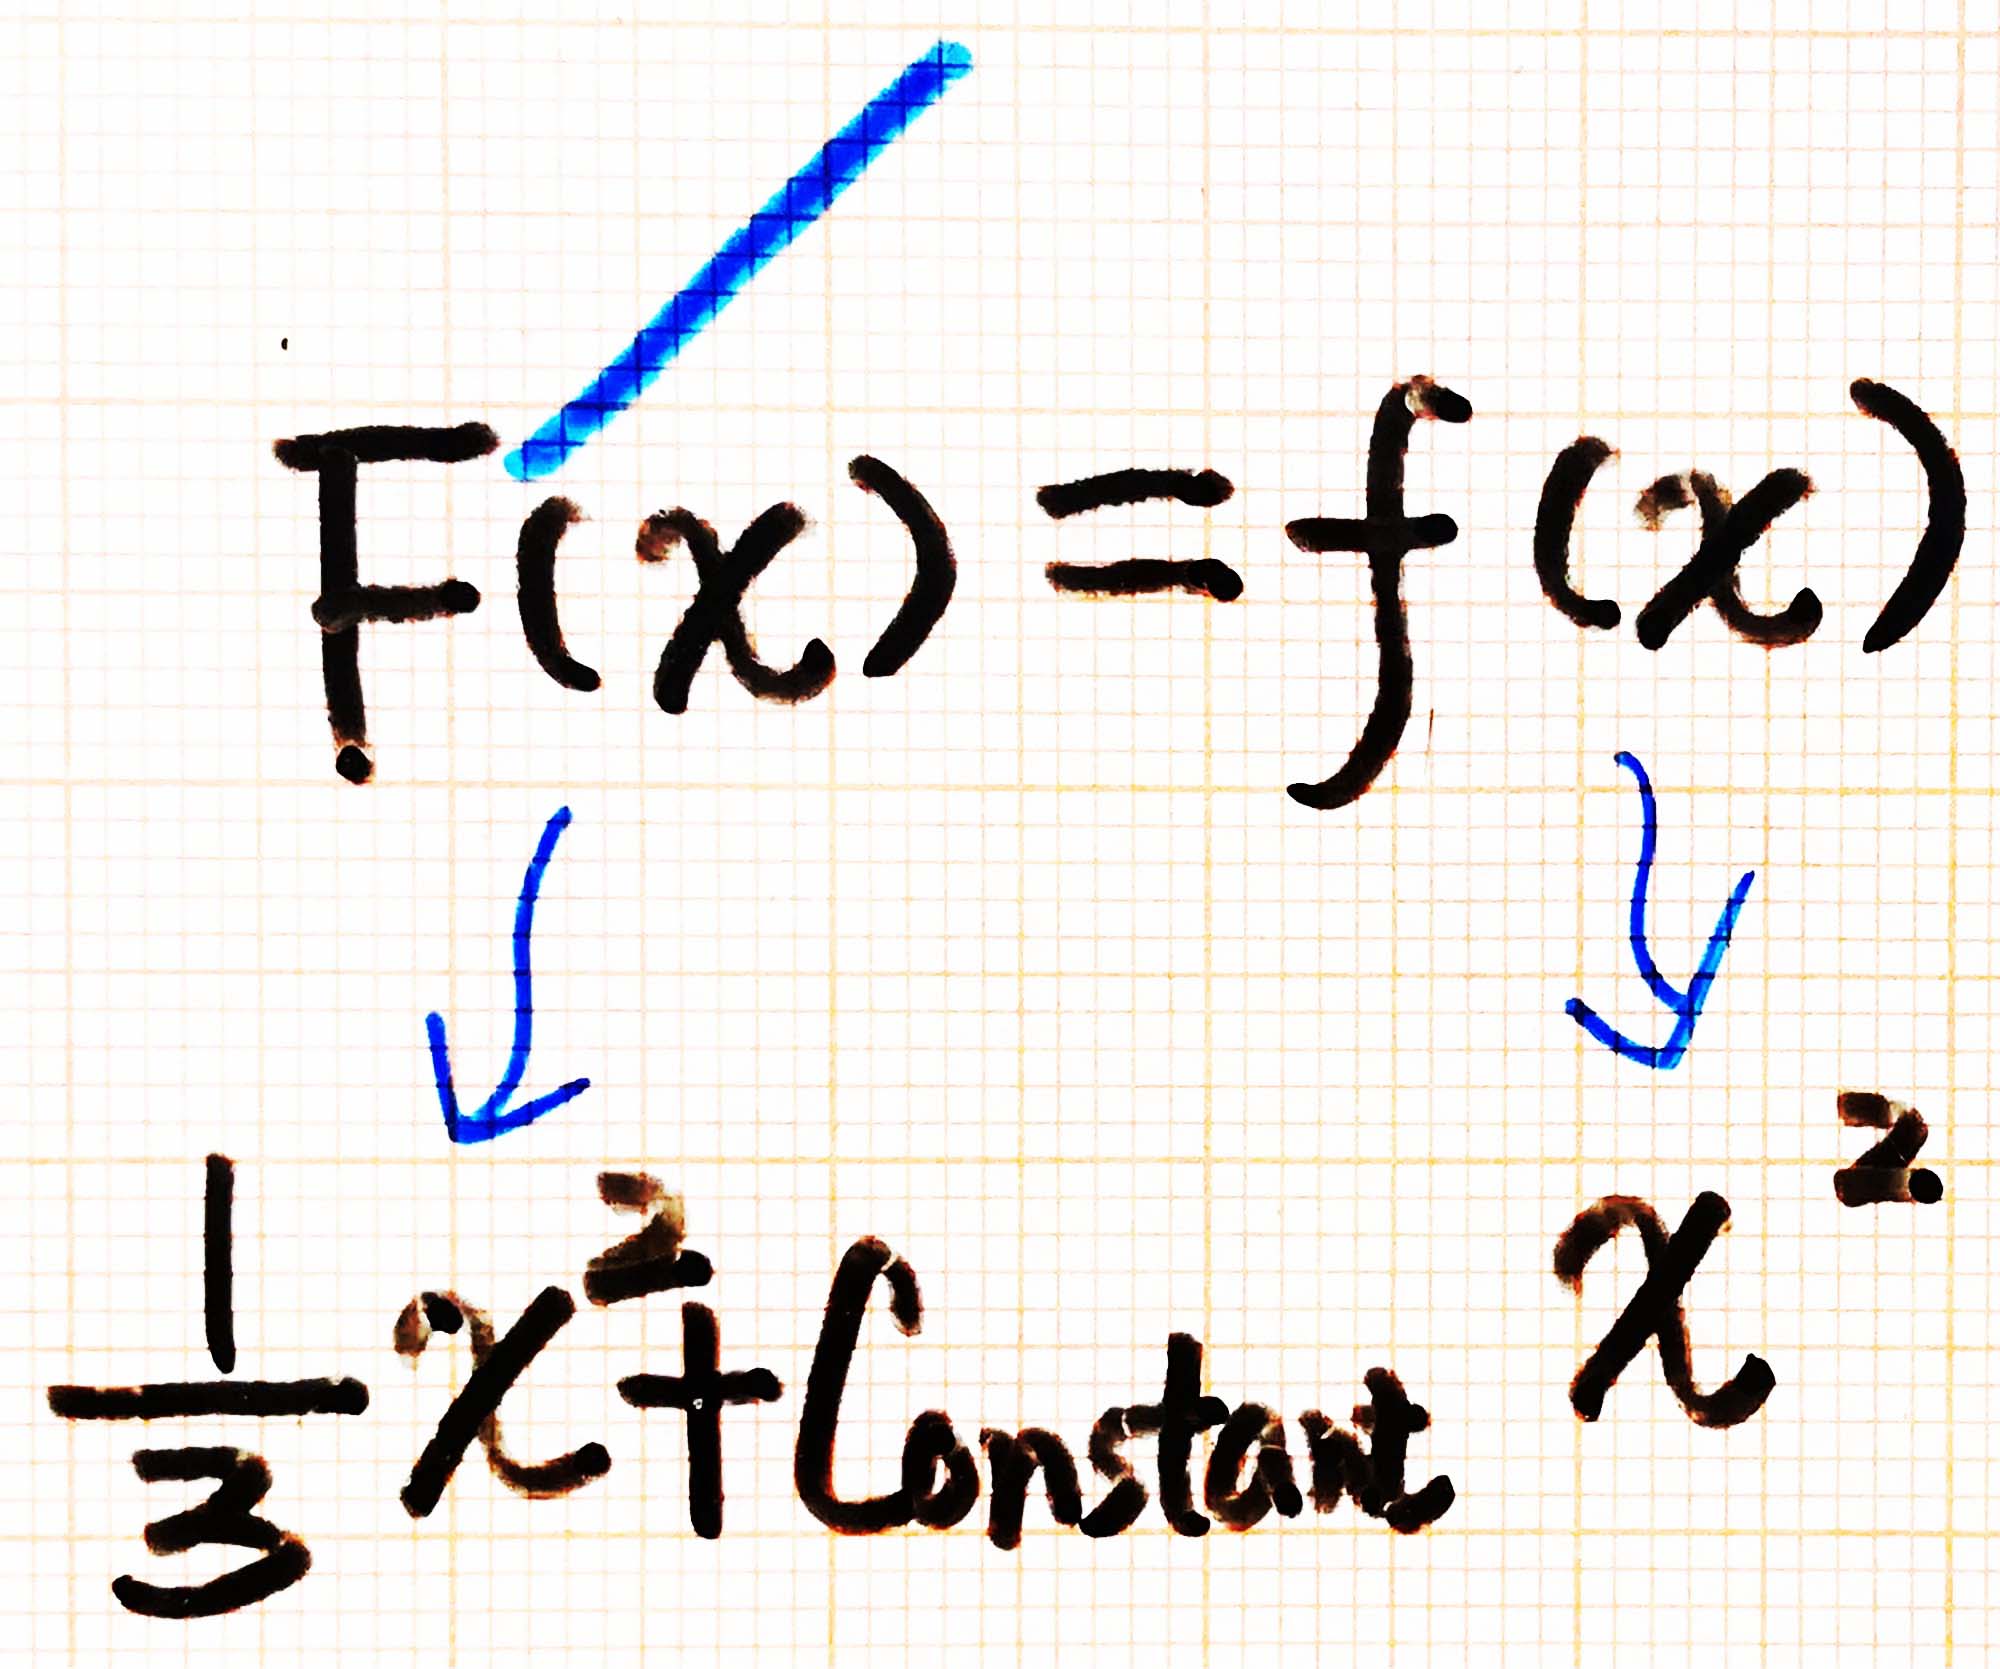 F′(x) = f(x)
1/3 x² + Constant x²